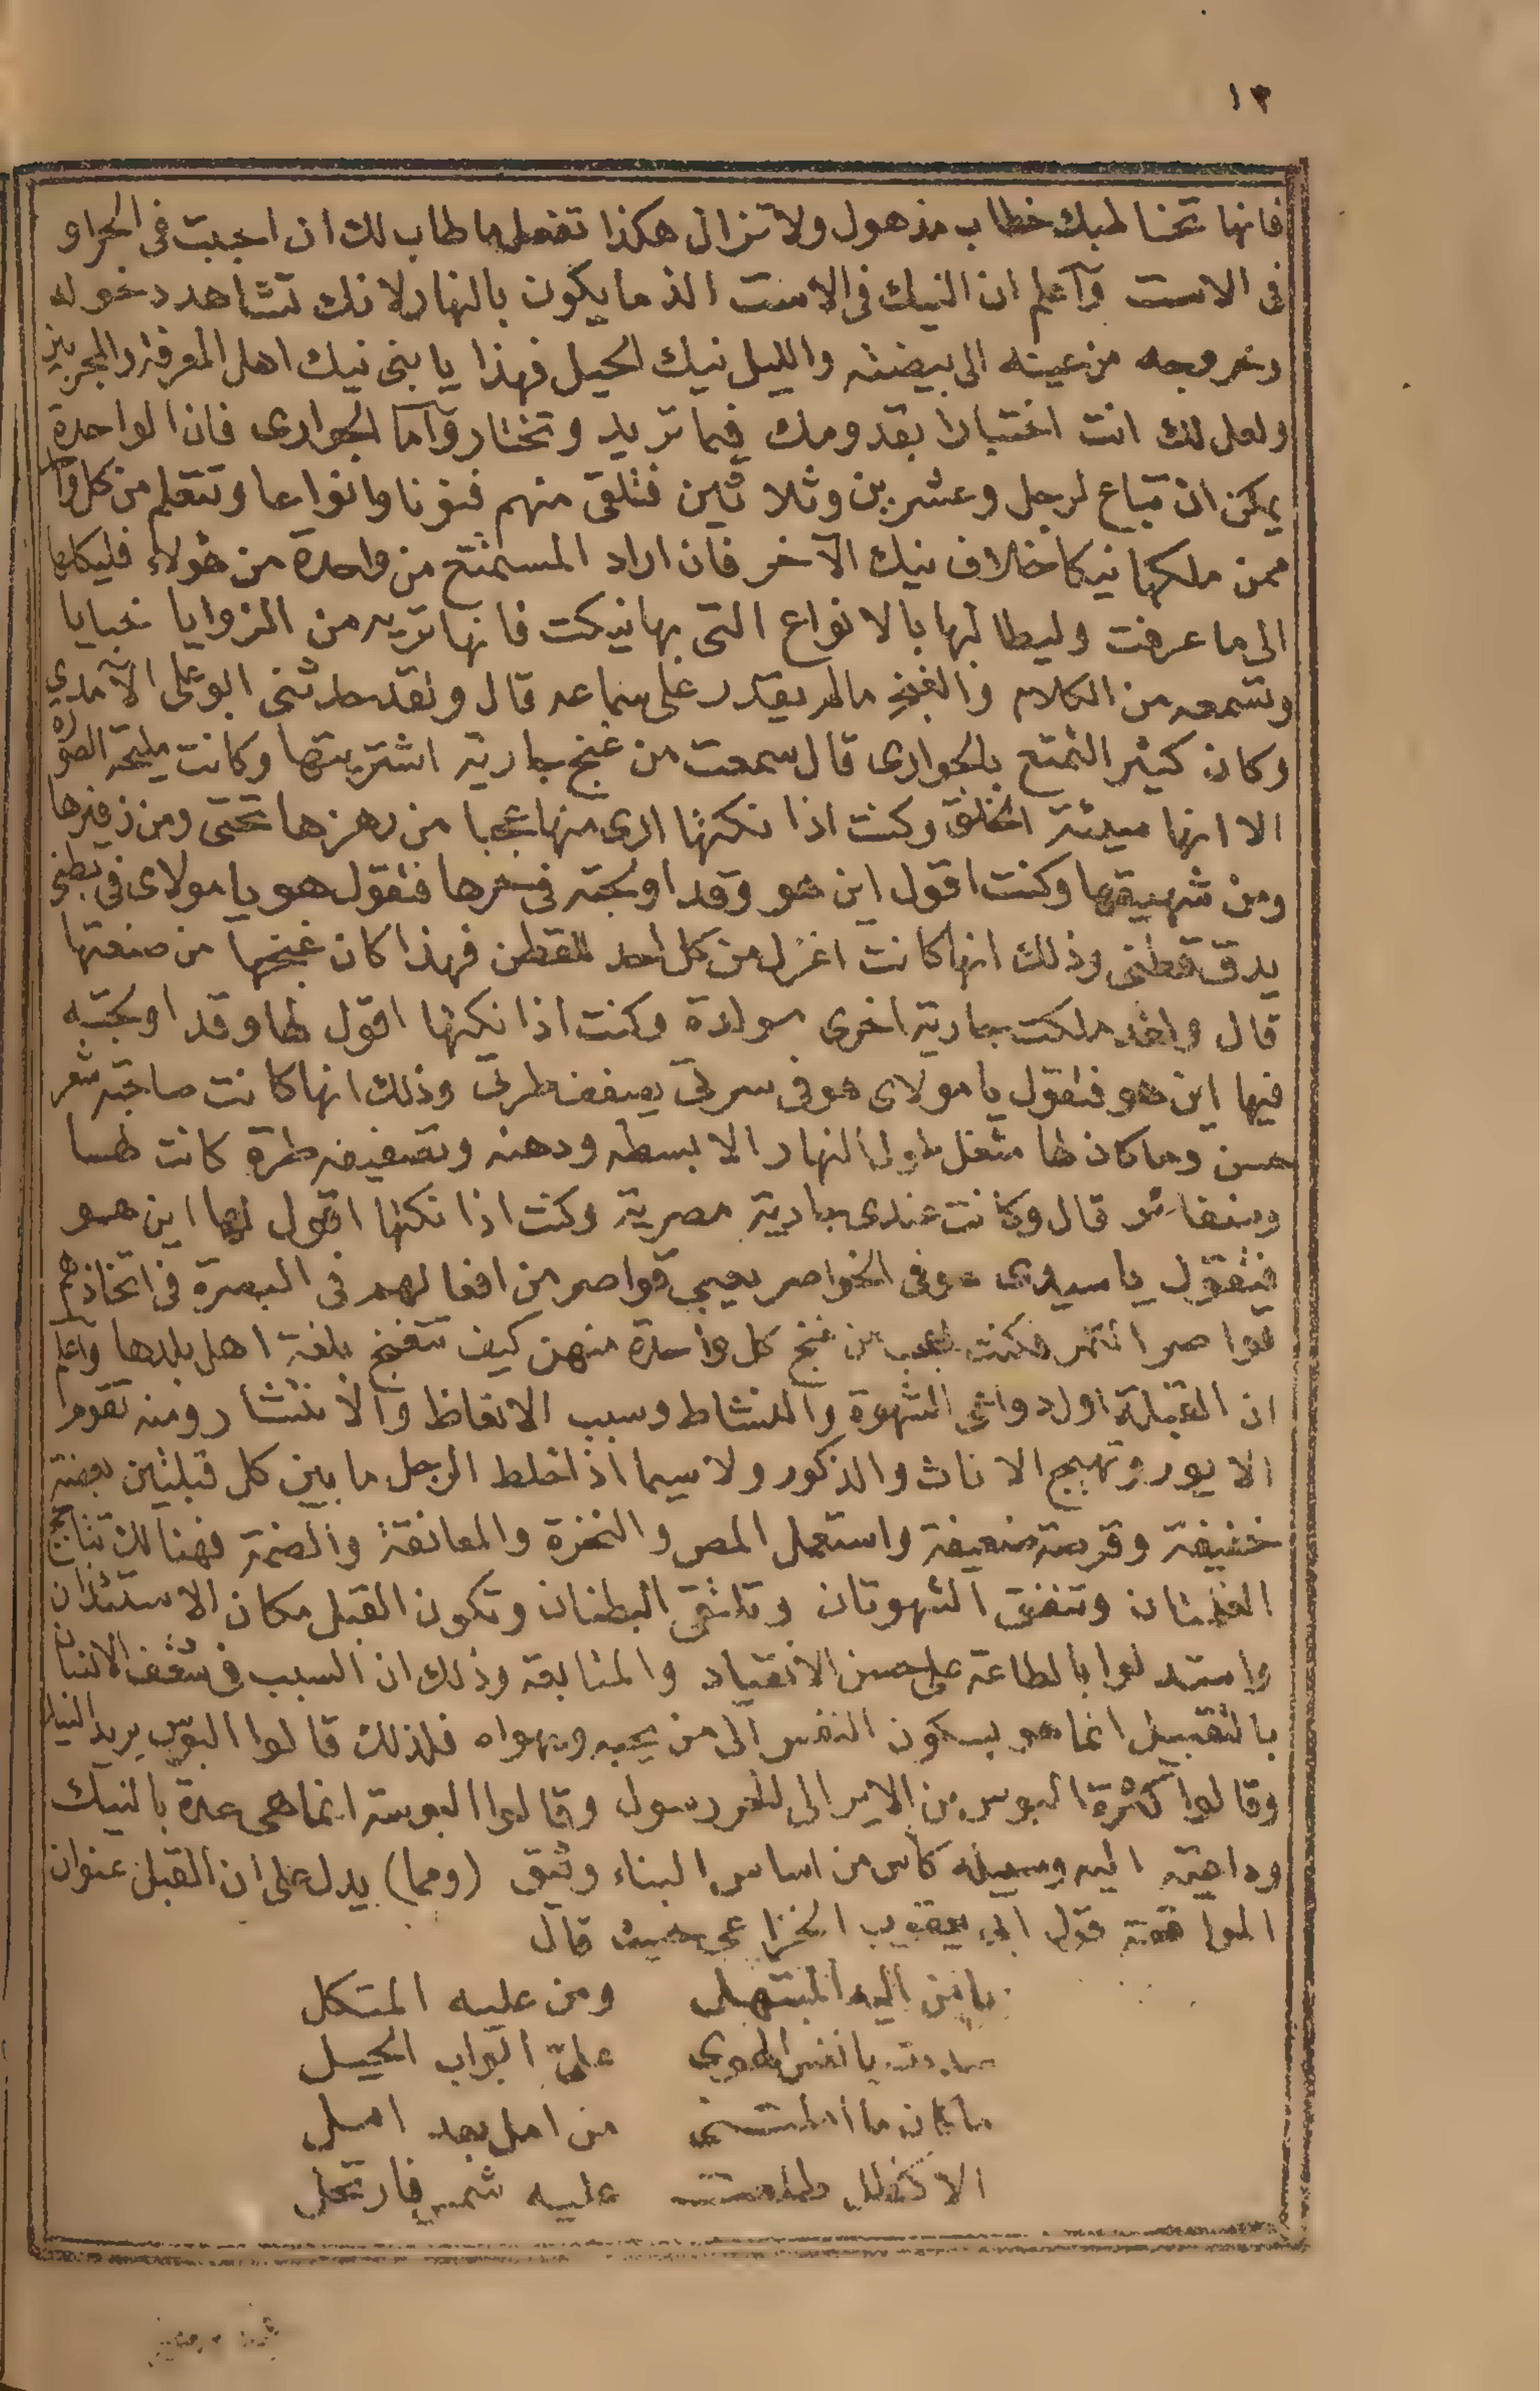 ١٢
فانها تخا طبك خطاب مذهول ولا تزال هكذا تفعل ما طاب لك ان احببت فى الحراو
فى الاست وآعلم ان النيك فى الاست الذ ما يكون بالنهار لانك تشاهد دخوله
وخروجه من عينه الى بيضته والليل نيك الحيل فهذا يا بنى نيك اهل المعرفة والمجربين
ولعل لك انت اختبارا بقدومك فيما تريد وتختار وآما الجوارى فان الواحدة
يمكن ان تباع لرجل وعشرين وثلا ثين فتلقى منهم فنونا وانواعا وتتعلم من كل وا
ممن ملكها نيكا خلاف نيك الآخر فان اراد المستمتع من واحدة من هولاء فليكلها
الى ما عرفت وليطا لبها بالانواع التى بها نيكت فانها تريه من الزوايا خبايا
وتسمعه من الكلام والغنج مالم يقدر على سماعه قال ولقد حدثنى ابو على الآمدي
وكان كثير التمتع بالجوارى قال سمعت من غنج جارية اشتريتها وكانت مليحة الصورة
الا انها سيئة الخلق وكنت اذا نكتها ارى منها عجبا من رهزها تحتى ومن زفيرها
ومن شهيقها وكنت اقول اين هو وقد اولجته فى حرها فتقول هو يا مولاى فى بطنى
يدق قطنى وذلك انها كانت اغزل من كل احد للقطن فهذا كان غنجها من صنعتها
قال واخد ملكت جارية اخرى مولدة وكنت اذا نكتها اقول لها وقد اولجته
فيها اين هو فتقول يا مولاى هو فى سرتى يصفف طرتى وذلك انها كانت صاحبة شعر
حسن وما كان لها شغل طول النهار الا بسطه ودهنه وتصفيف طرة كانت لها
وضفائر قال وكانت عندى جارية مصرية وكنت اذا نكتها اقول لها اين هو
فتقول يا سيدى هو فى الخواصر يعبى قواصر من افعالهم فى البصرة فى اتخاذهم
قواصر التمر فكنت اعجب من غنج كل واحدة منهن كيف تتغنج بلغة اهل بلدها واعلم
ان القبلة اول دواعى الشهوة والنشاط وسبب الانعاظ والانتشار ومنه تقوم
الايور وتهيج الاناث والذكور ولا سيما اذا خلط الرجل ما بين كل قبلتين بعضة
خفيفة وقرصة ضعيفة واستعمل المص والنخزة والمعانقة والضمة فهنالك تتاجج
الغلمتان وتتفق الشهوتان وتلتقى البطنان وتكون القبل مكان الاستئذان
واستدلوا بالطاعة على حسن الانقياد والمتابعة وذلك ان السبب فى شغف الانسان
بالتقبيل انما هو بسكون النفس الى من يحبه ويهواه فلذلك قالوا البوس بريد النيك
وقالوا كثرة البوس من الاير الى للحر رسول وقالوا البوسة انما هى عدة بالنيك
وداعية اليه وسيلة كأس من اساس البناء وثيق (ومما) يدل على ان القبل عنوان
الموا فقة قول ابى يعقوب الخزاعى حيث قال
يا من اليه المبتهل ومن عليه المتكل
سددت يا نفس الهوي علىّ ابواب الحيل
ما كان ما من امل بعد امل
الا كظل طلعت عليه شمس فارتحل